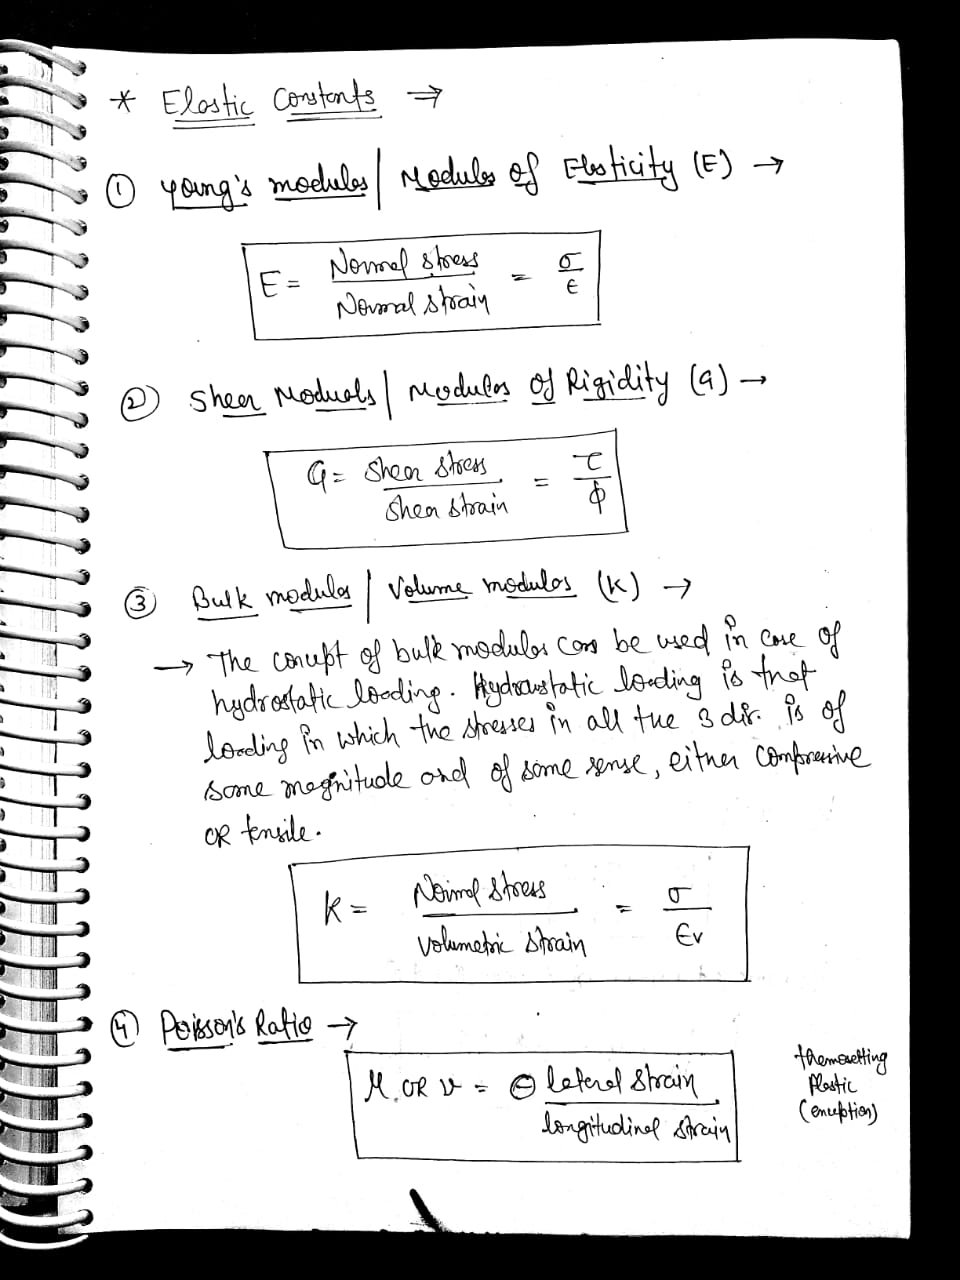 * Elastic Constants ⇒
① Young's modulus / Modulus of Elasticity (E) →
E = Normal stress / Normal strain = σ / ε
② Shear Moduls / Modulus of Rigidity (G) →
G = Shear stress / Shear strain = τ / ϕ
③ Bulk modulus / Volume modulus (K) →
→ The concept of bulk modulus can be used in case of
hydrostatic loading. Hydrostatic loading is that
loading in which the stresses in all the 3 dir. is of
same magnitude and of same sense, either compressive
OR tensile.
K = Normal stress / Volumetric strain = σ / εv
④ Poisson's Ratio →
μ OR ν = ⊖ lateral strain / longitudinal strain
themosetting
Plastic
(exception)